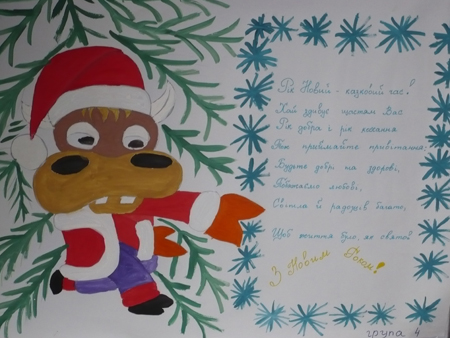 Рік Новий - казковий час!
Хай здивує щастям Вас
Рік добра і рік кохання
Ви приймайте привітання:
Будьте добрі та здорові,
Побажаємо любові,
Світла й радощів багато,
Щоб життя було, як свято!
З Новим Роком!
група 4